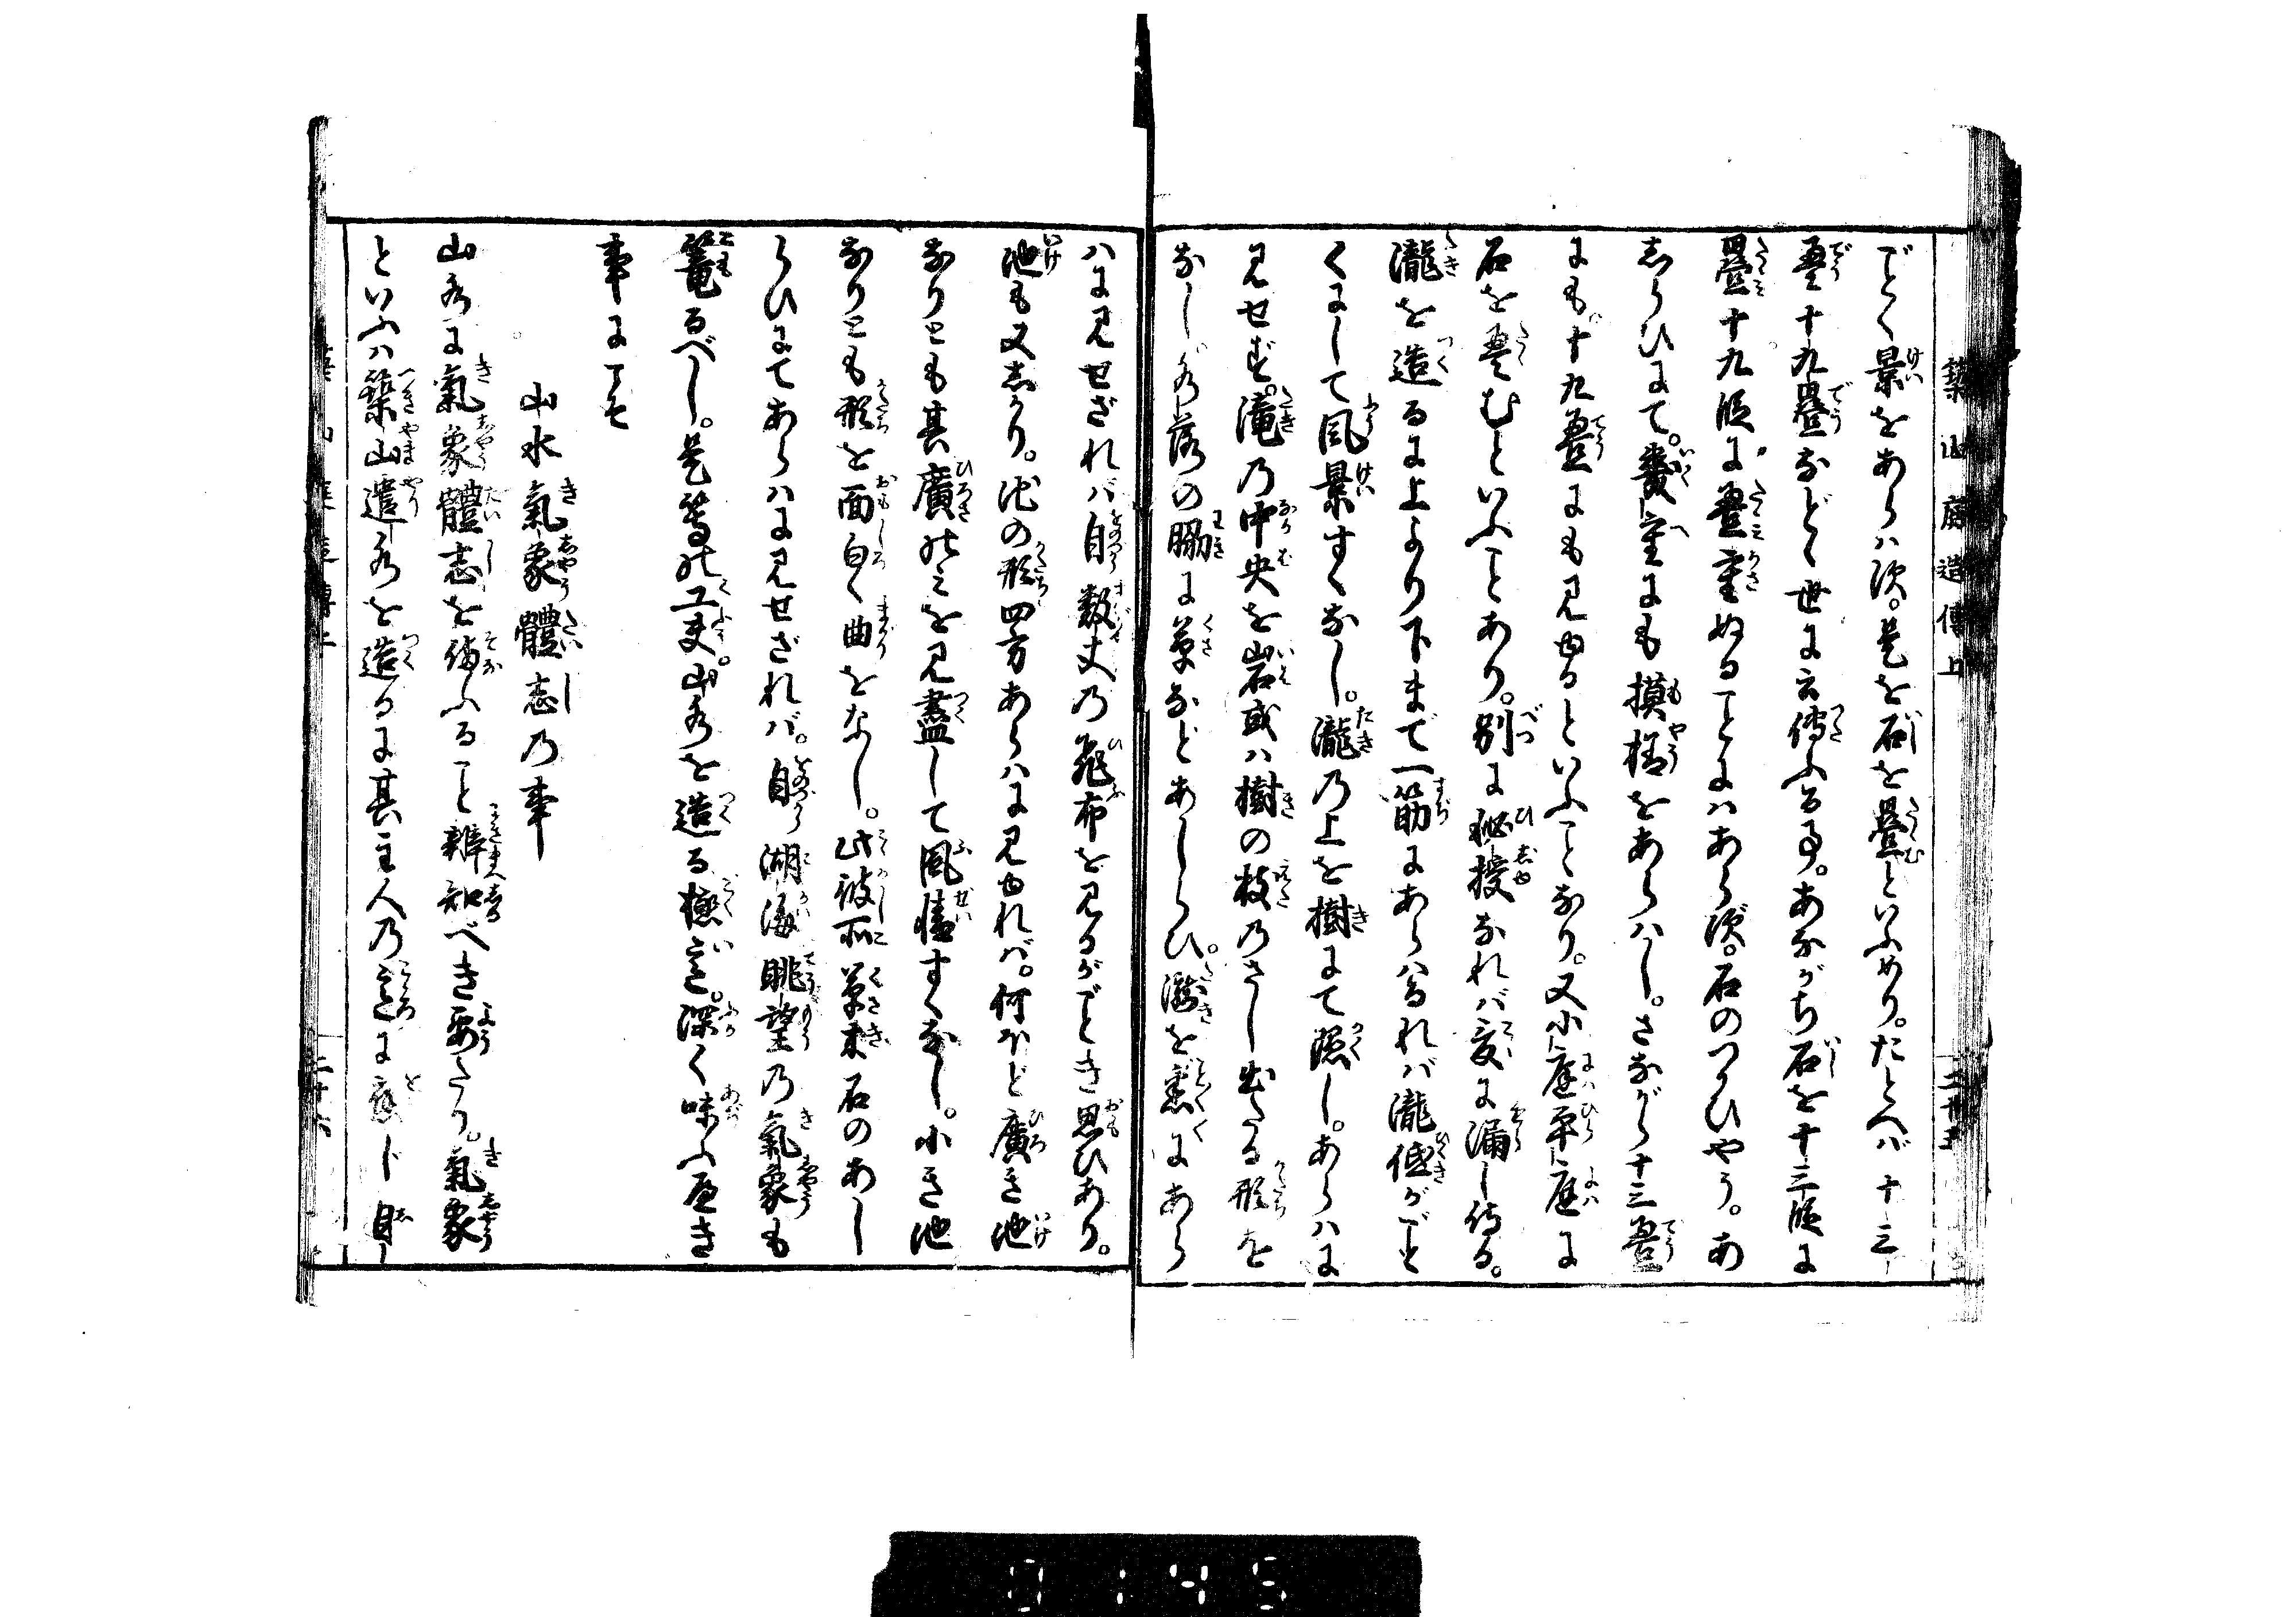 築山庭造傳上 二十五
ごとく景をあらハす。是を石を疊といふめり。たとへバ十三
疊十九疊などゝ世に云傳ふる事。あながち石を十三段に
疊十九段に疊重ぬることにハあらず。石のつかひやう。あ
しらひにて。数重にも模様をあらハし。さながら十三疊
にも十九疊にも見ゆるといふことなり。又小庭平庭に
石を疊むといふことあり。別に秘授なれバ爰に漏し侍る。
瀧を造るに上より下まで一筋にあらハるれバ瀧低がごと
くにして風景すくなし。瀧乃上を樹にて隠し。あらハに
見せず。滝乃中央を岩或ハ樹の枝乃さし出たる形を
なし水落の脇に草などあしらひ。瀧を悉くにあら
ハに見せざれバ自数丈乃飛布を見るがごとき思ひあり。
池も又しかり。池の形四方あらハに見ゆれバ。何ほど廣き池
なりとも其廣のミを見盡して風情すくなし。小き池
なりとも形を面白く曲をなし。此彼所草木石のあし
らひにてあらハに見せざれバ。自湖海眺望乃氣象も
篭るべし。是等の工夫。山水を造る極意。深く味ふべき
事にこそ
山水氣象體志乃事
山水に氣象體志を備ふること辨知べき要たり。氣象
といふハ築山遣水を造るに其主人乃意に應じ自
築山庭造傳上 二十六